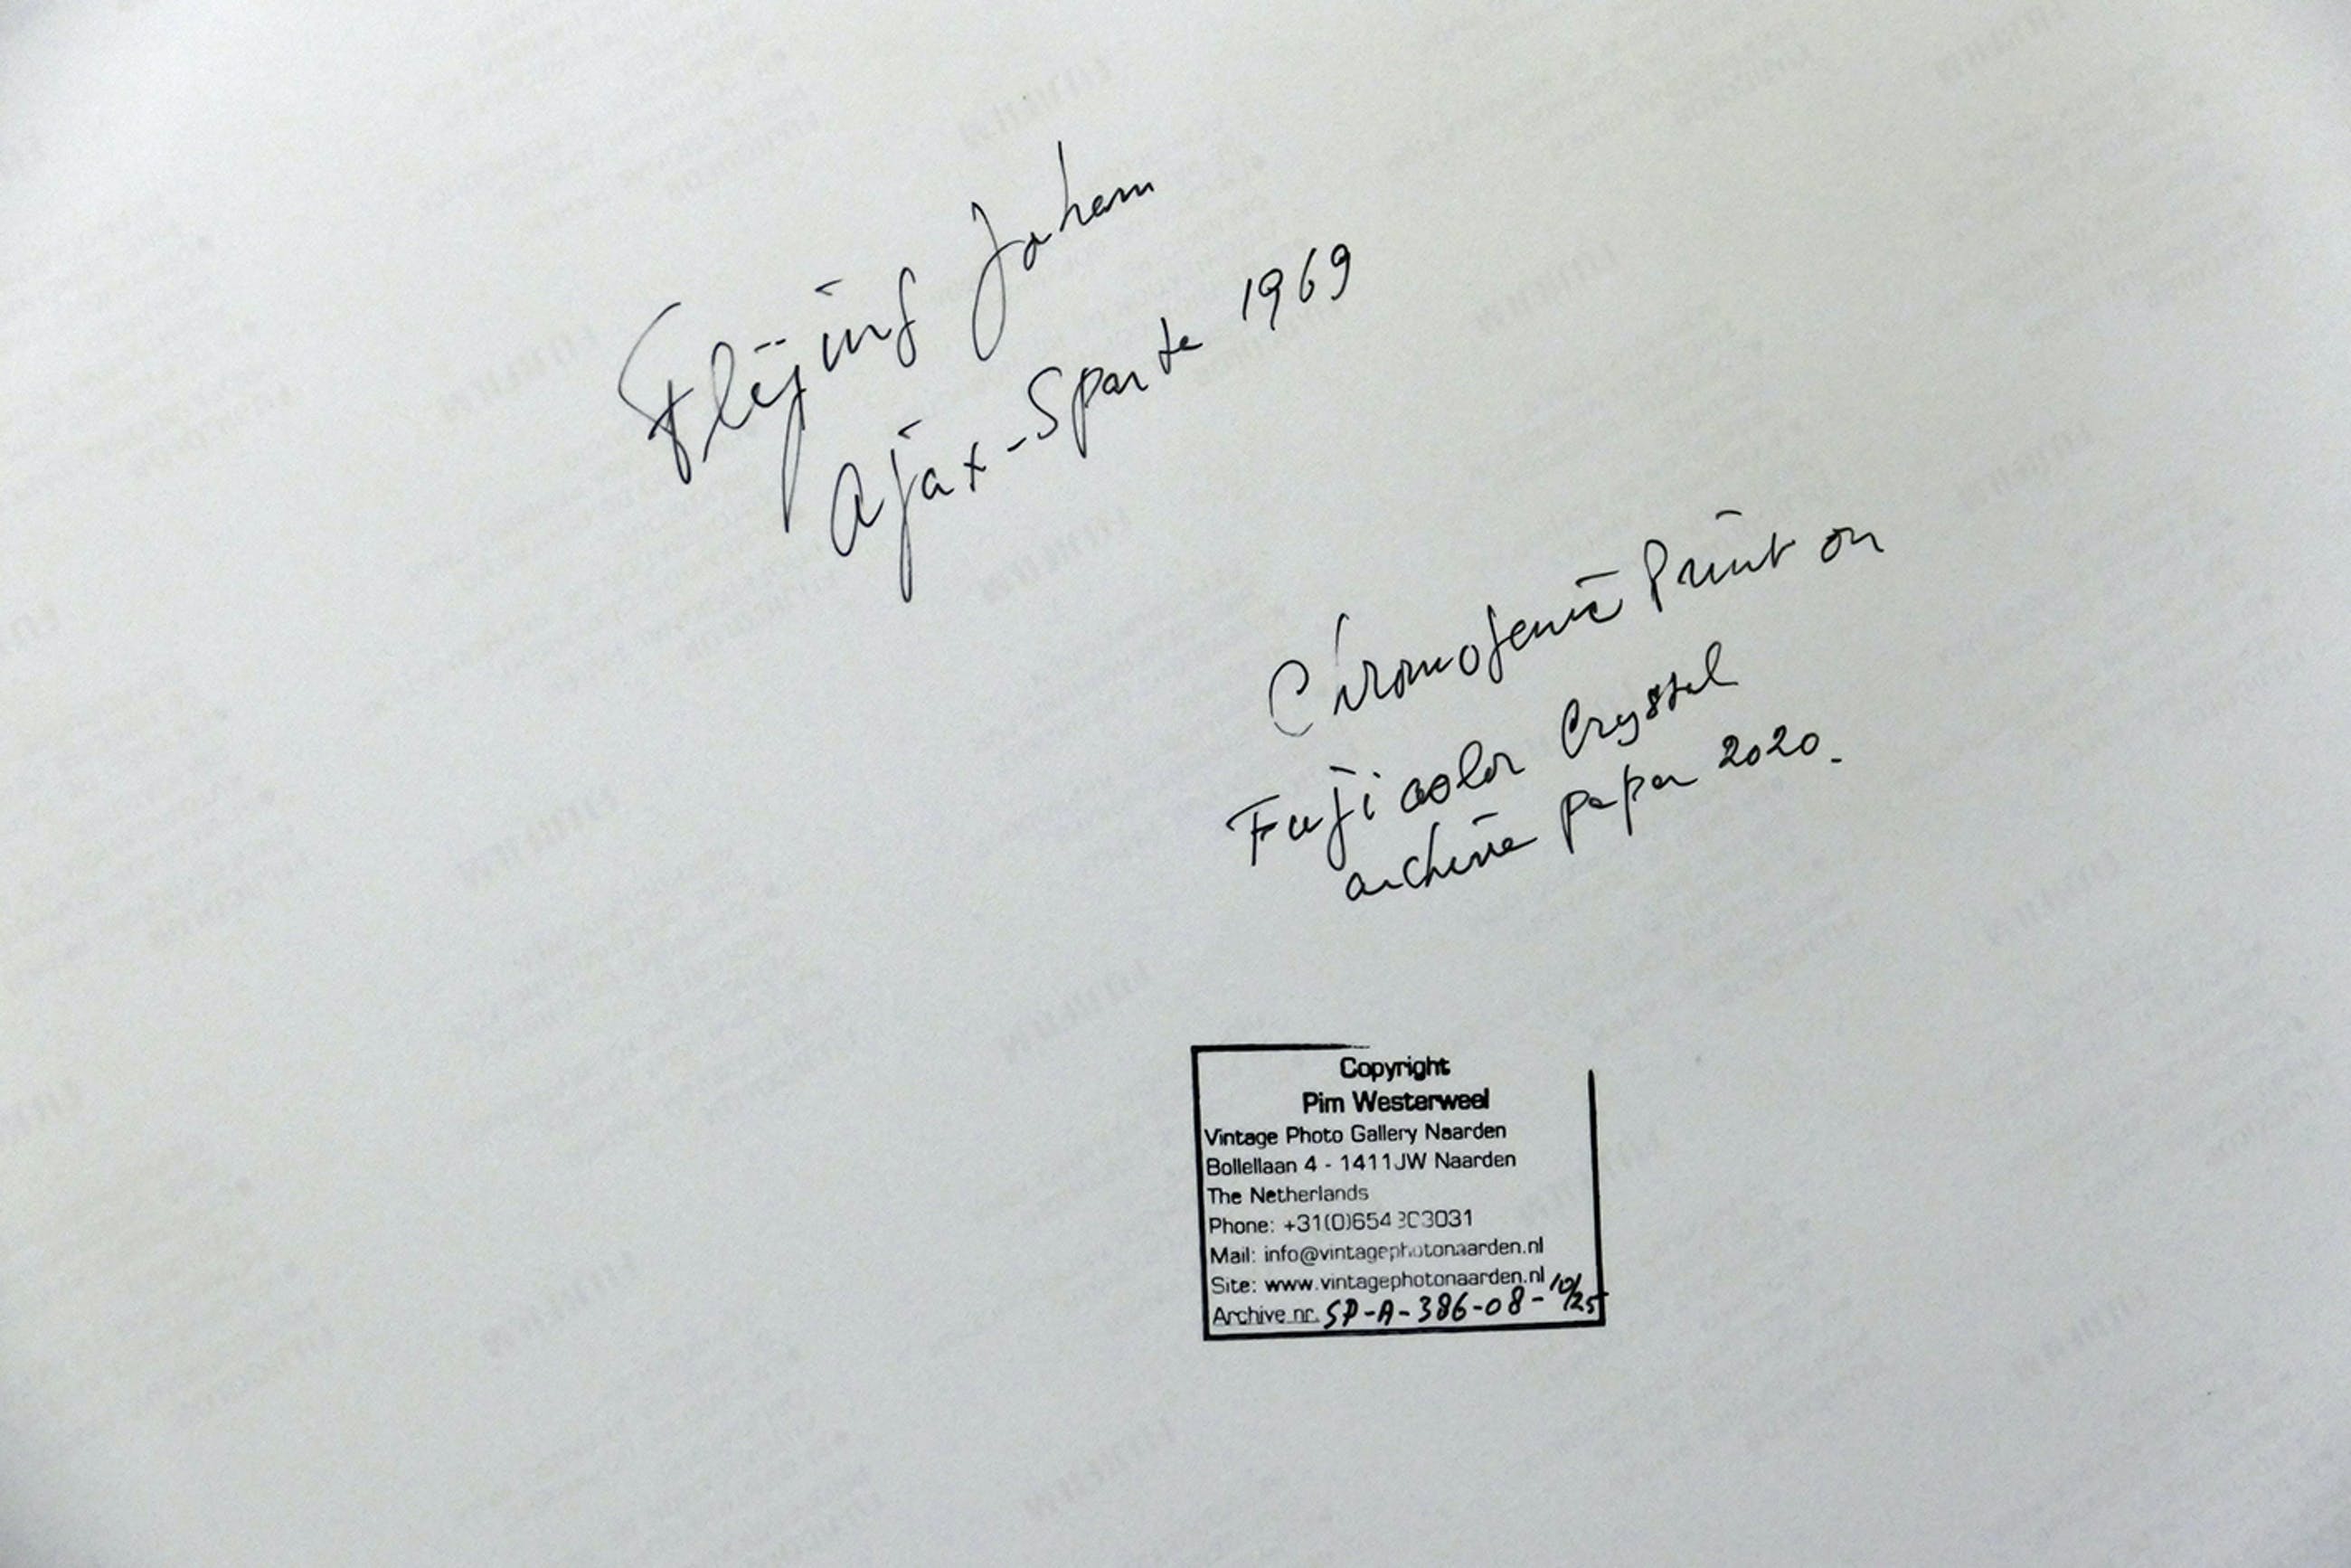 Flÿing Johan
Ajax-Sparta 1969
Chromogenic Print on
Fuji color Crystal
archive paper 2020.
Copyright
Pim Westerweel
Vintage Photo Gallery Naarden
Bollellaan 4 - 1411JW Naarden
The Netherlands
Phone: +31(0)654 303031
Mail: info@vintagephotonaarden.nl
Site: www.vintagephotonaarden.nl
Archive nr. SP-A-386-08-10/25